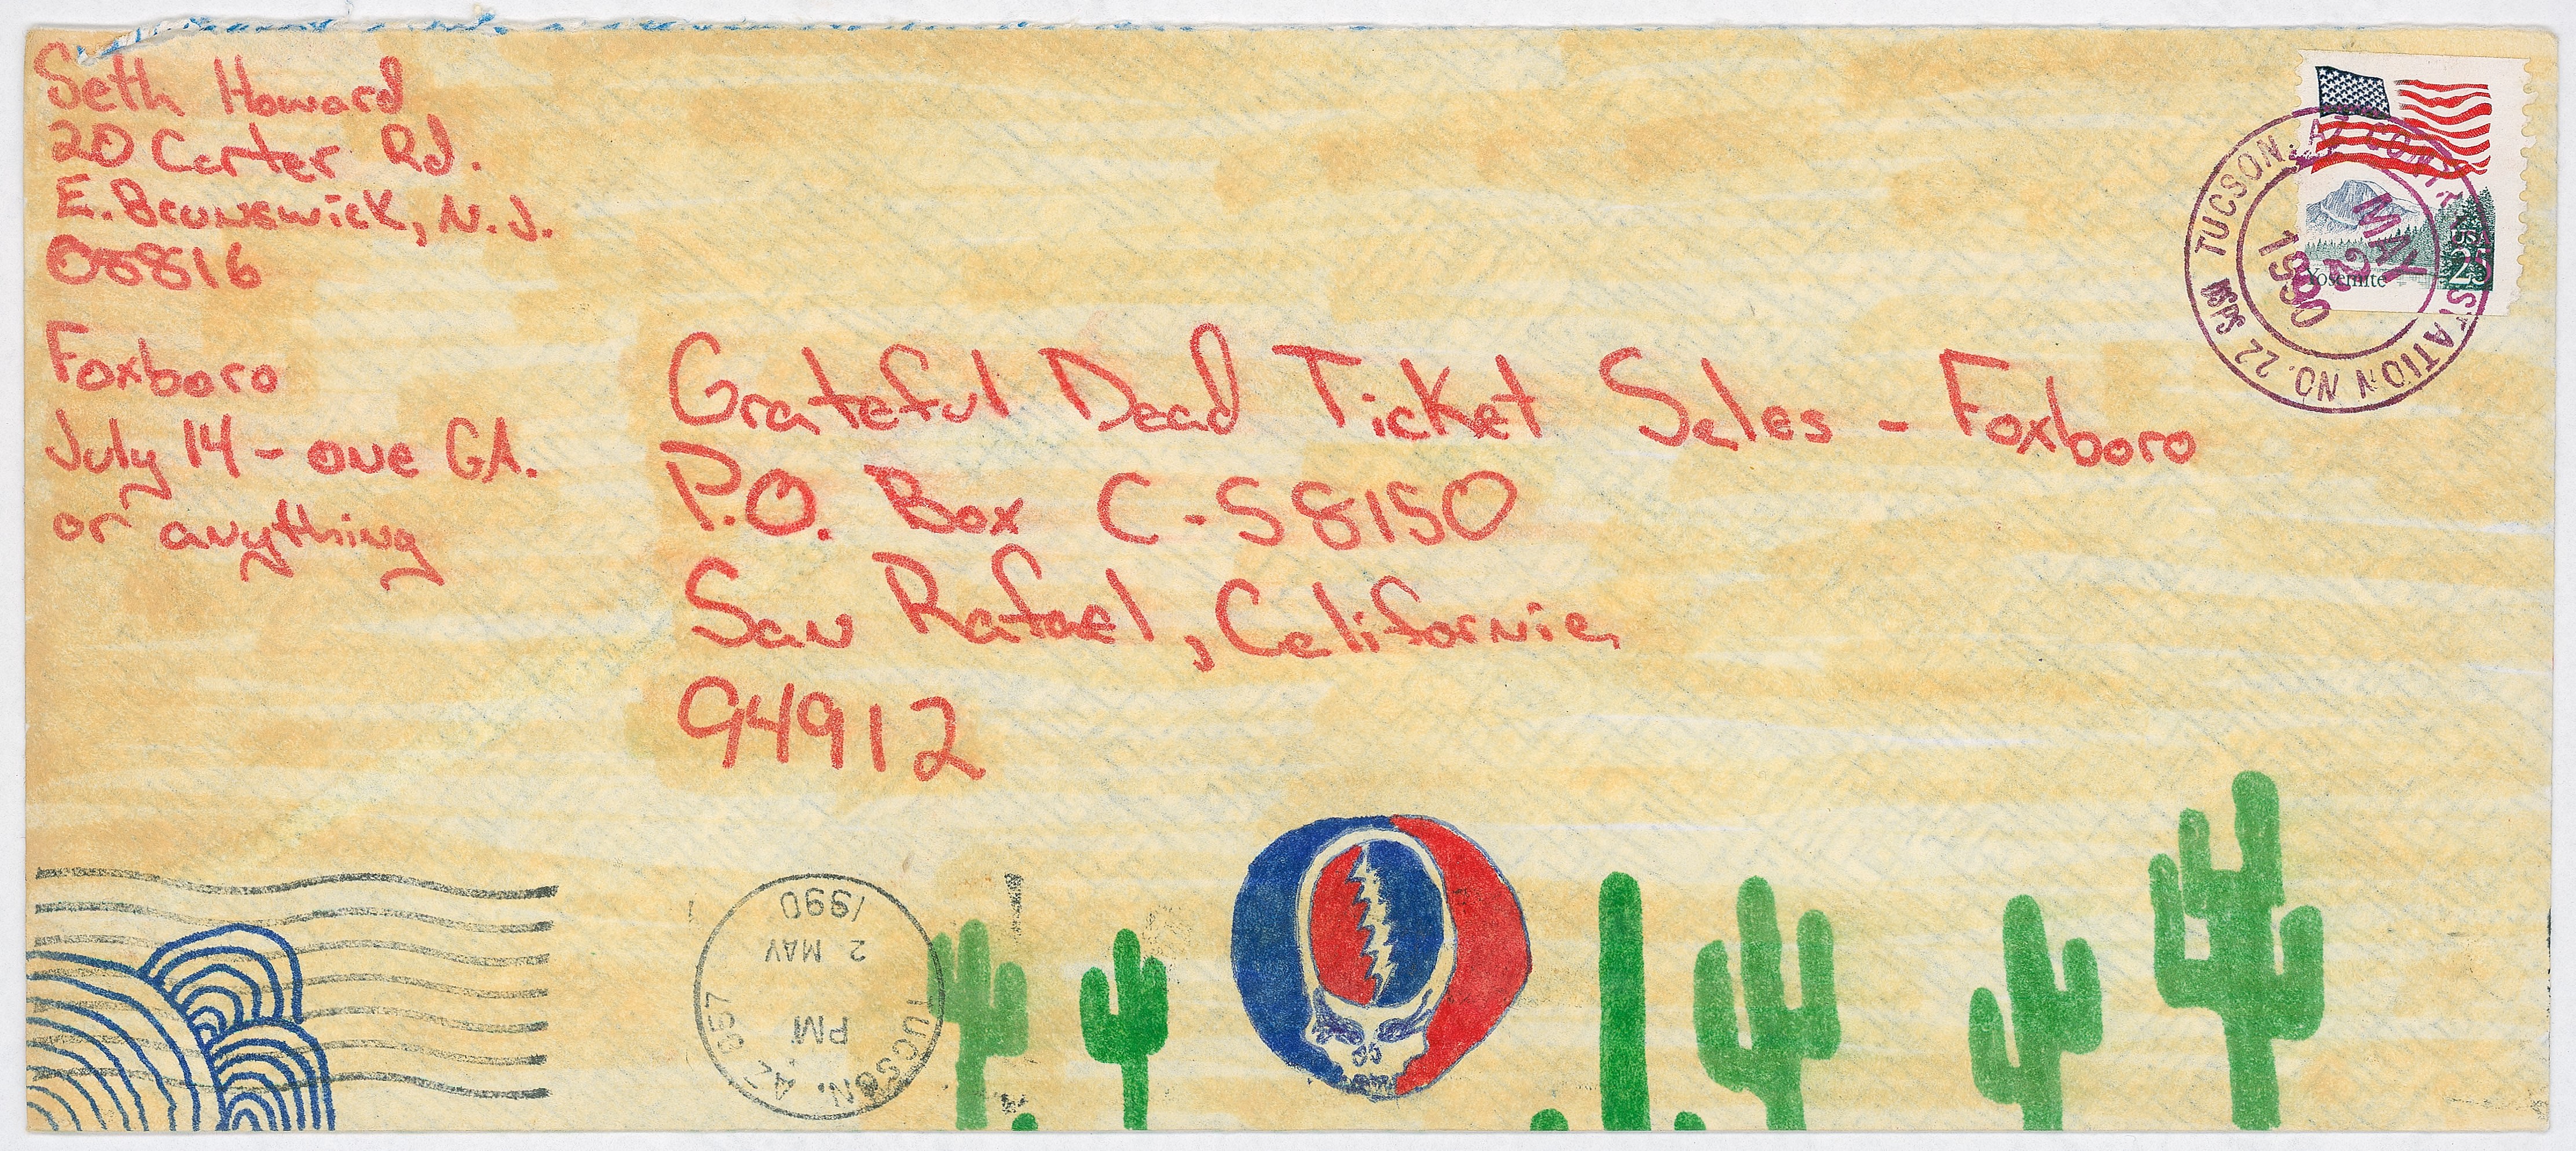 Seth Howard
20 Carter Rd.
E. Brunswick, N.J.
08816
Foxboro
July 14 - one GA.
or anything
Grateful Dead Ticket Sales - Foxboro
P.O. Box C-S8150
San Rafael, California
94912
USA
25
Yosemite
TUCSON, AZ STATION NO. 22 USPS
MAY
2
1990
TUCSON, AZ 857
PM
2 MAY
1990